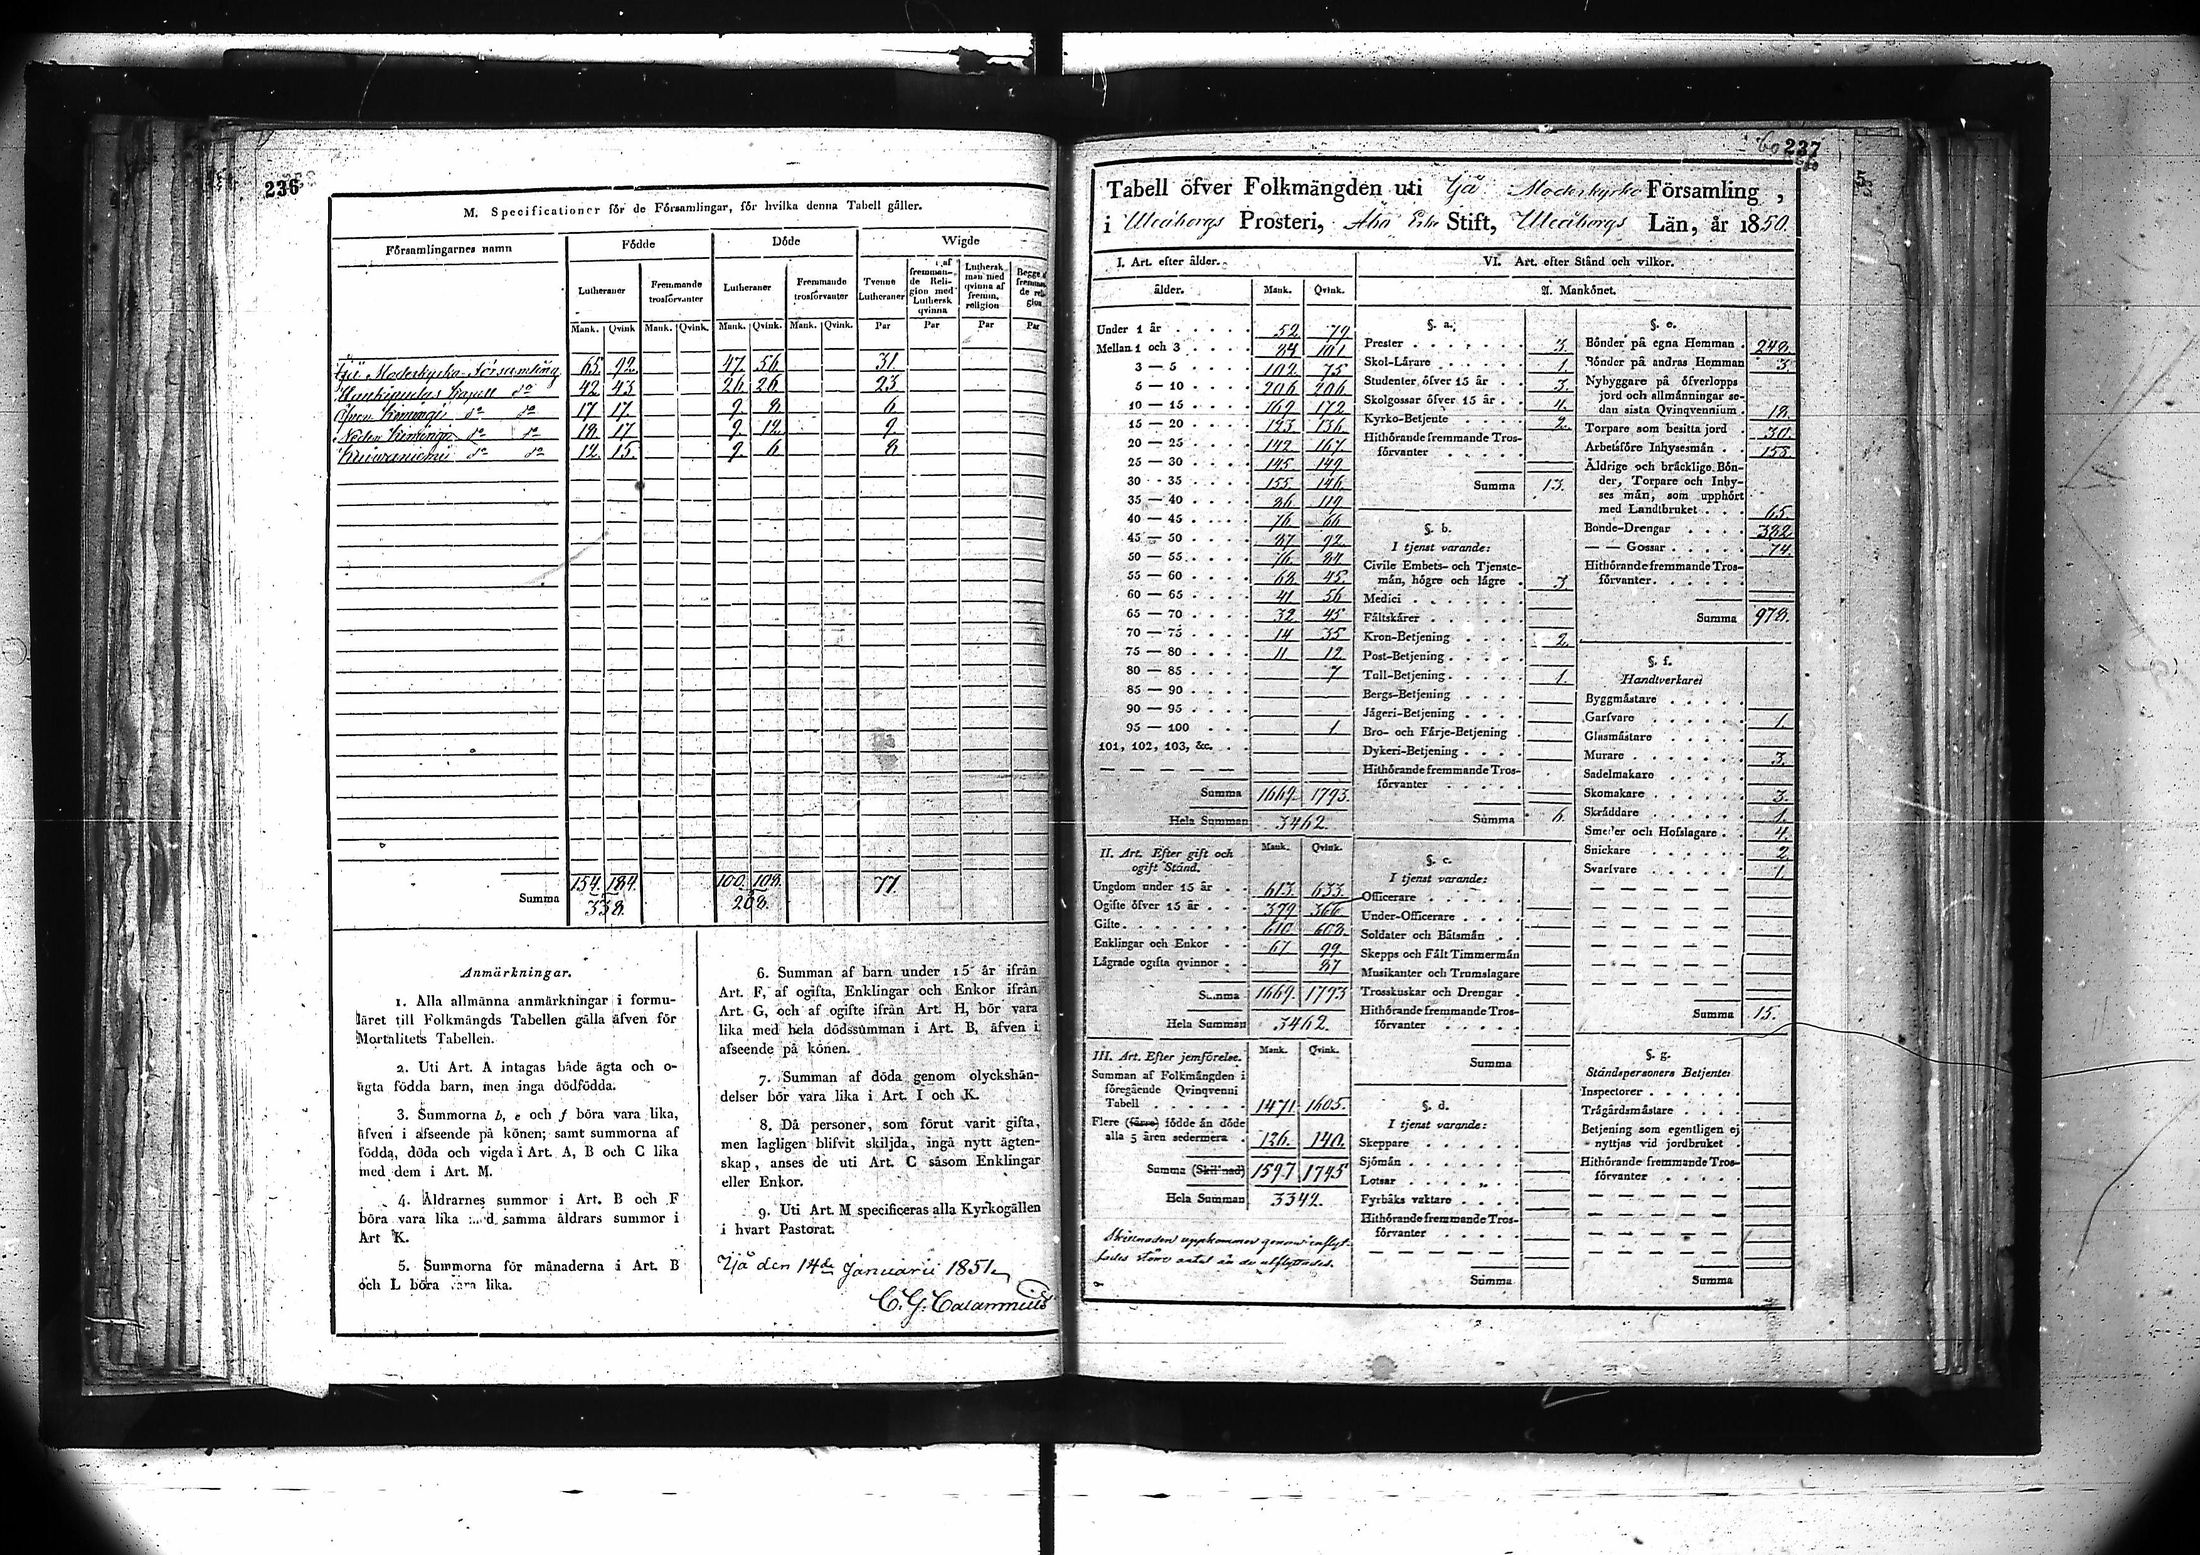 236
M. Specificationer för de Församlingar, för hvilka denna Tabell gäller.
Församlingarnes namn
Födde
Döde
Wigde
Lutheraner
Fremmande trosförvanter
Lutheraner
Fremmande trosförvanter
Tvenne Lutheraner
af fremmande Religion med Luthersk qvinna
Luthersk man med qvinna af fremm. religion
Mank. Qvink Mank. Qvink. Mank. Qvink. Mank. Qvink. Par Par Par Par
Ijå Moderkyrko-församling 65 92 47 56 31
Haukipudas Kapell do 42 43 26 26 23
Öfver Kiminge do do 17 17 9 8 6
Neder Kiminge do do 18 17 9 12 9
Kuiwaniemi do do 12 15 9 6 8
Summa 154 184 100 108 77
338. 208.
Anmärkningar.
1. Alla allmänna anmärkningar i formu-
läret till Folkmängds Tabellen gälla äfven för
Mortalitets Tabellen.
2. Uti Art. A intagas både ägta och o-
ägta födda barn, men inga dödfödda.
3. Summorna b, e och f böra vara lika,
äfven i afseende på könen; samt summorna af
födda, döda och vigda i Art. A, B och C lika
med dem i Art. M.
4. Åldrarnes summor i Art. B och F
böra vara lika med samma åldrars summor i
Art K.
5. Summorna för månaderna i Art. B
och L böra vara lika.
6. Summan af barn under 15 år ifrån
Art. F, af ogifta, Enklingar och Enkor ifrån
Art. G, och af ogifte ifrån Art. H, bör vara
lika med hela dödssumman i Art. B, äfven i
afseende på könen.
7. Summan af döda genom olyckshän-
delser bör vara lika i Art. I och K.
8. Då personer, som förut varit gifta,
men lagligen blifvit skiljda, ingå nytt ägten-
skap, anses de uti Art. C såsom Enklingar
eller Enkor.
9. Uti Art. M specificeras alla Kyrkogällen
i hvart Pastorat.
Ijå den 14de Januarii 1851
C. G. Calamnius
60 237
Tabell öfver Folkmängden uti Ijå Moderkyrko Församling,
i Uleåborgs Prosteri, Åbo Erke Stift, Uleåborgs Län, år 1850.
I. Art. efter ålder.
ålder. Mank. Qvink.
Under 1 år 52 79
Mellan 1 och 3 84 101
3 — 5 102 75
5 — 10 206 206
10 — 15 169 172
15 — 20 123 136
20 — 25 142 167
25 — 30 145 149
30 — 35 155 146
35 — 40 86 119
40 — 45 76 66
45 — 50 87 92
50 — 55 76 84
55 — 60 68 45
60 — 65 41 56
65 — 70 32 45
70 — 75 14 35
75 — 80 11 12
80 — 85 7
85 — 90
90 — 95
95 — 100 1
101, 102, 103, &c.
Summa 1669. 1793.
Hela Summan 3462.
II. Art. Efter gift och
ogift Stånd. Mank. Qvink.
Ungdom under 15 år 613. 633.
Ogifte öfver 15 år 379 366
Gifte 610 608
Enklingar och Enkor 67 99
Lägrade ogifta qvinnor 87
Summa 1669. 1793
Hela Summan 3462.
III. Art. Efter jemförelse. Mank. Qvink.
Summan af Folkmängden i
föregående Qvinqvenni
Tabell 1471 1605.
Flere (färre) födde än döde
alla 5 åren sedermera 126. 140.
Summa (Skilnad) 1597. 1745
Hela Summan 3342.
Skillnaden uppkommer genom inflyt-
tades större antal än de utflyttades.
VI. Art. efter Stånd och vilkor.
A. Mankönet.
§. a.
Prester 3.
Skol-Lärare 1.
Studenter öfver 15 år 3.
Skolgossar öfver 15 år 4.
Kyrko-Betjente 2.
Hithörande fremmande Tros-
förvanter
Summa 13.
§. b.
I tjenst varande:
Civile Embets- och Tjenste-
män, högre och lägre 3
Medici
Fältskärer
Kron-Betjening 2.
Post-Betjening
Tull-Betjening 1.
Bergs-Betjening
Jägeri-Betjening
Bro- och Färje-Betjening
Dykeri-Betjening
Hithörande fremmande Tros-
förvanter
Summa 6.
§. c.
I tjenst varande:
Officerare
Under-Officerare
Soldater och Båtsmän
Skepps och Fält Timmermän
Musikanter och Trumslagare
Trosskuskar och Drengar
Hithörande fremmande Tros-
förvanter
Summa
§. d.
I tjenst varande:
Skeppare
Sjömän
Lotsar
Fyrbåks vaktare
Hithörande fremmande Tros-
förvanter
Summa
§. e.
Bönder på egna Hemman 248.
Bönder på andras Hemman 3.
Nybyggare på öfverlopps
jord och allmänningar se-
dan sista Qvinqvennium 18.
Torpare som besitta jord 30.
Arbetsföre Inhysesmän 155
Åldrige och bräcklige Bön-
der, Torpare och Inhy-
ses män, som upphört
med Landtbruket 65
Bonde-Drengar 382
— — Gossar 74.
Hithörande fremmande Tros-
förvanter
Summa 978.
§. f.
Handtverkare:
Byggmästare
Garfvare 1.
Glasmästare
Murare 3.
Sadelmakare
Skomakare 3.
Skräddare 1.
Smeder och Hofslagare 4.
Snickare 2
Svarfvare 1.
Summa 15.
§. g.
Ståndspersoners Betjente:
Inspectorer
Trägårdsmästare
Betjening som egentligen ej
nyttjas vid jordbruket
Hithörande fremmande Tros-
förvanter
Summa